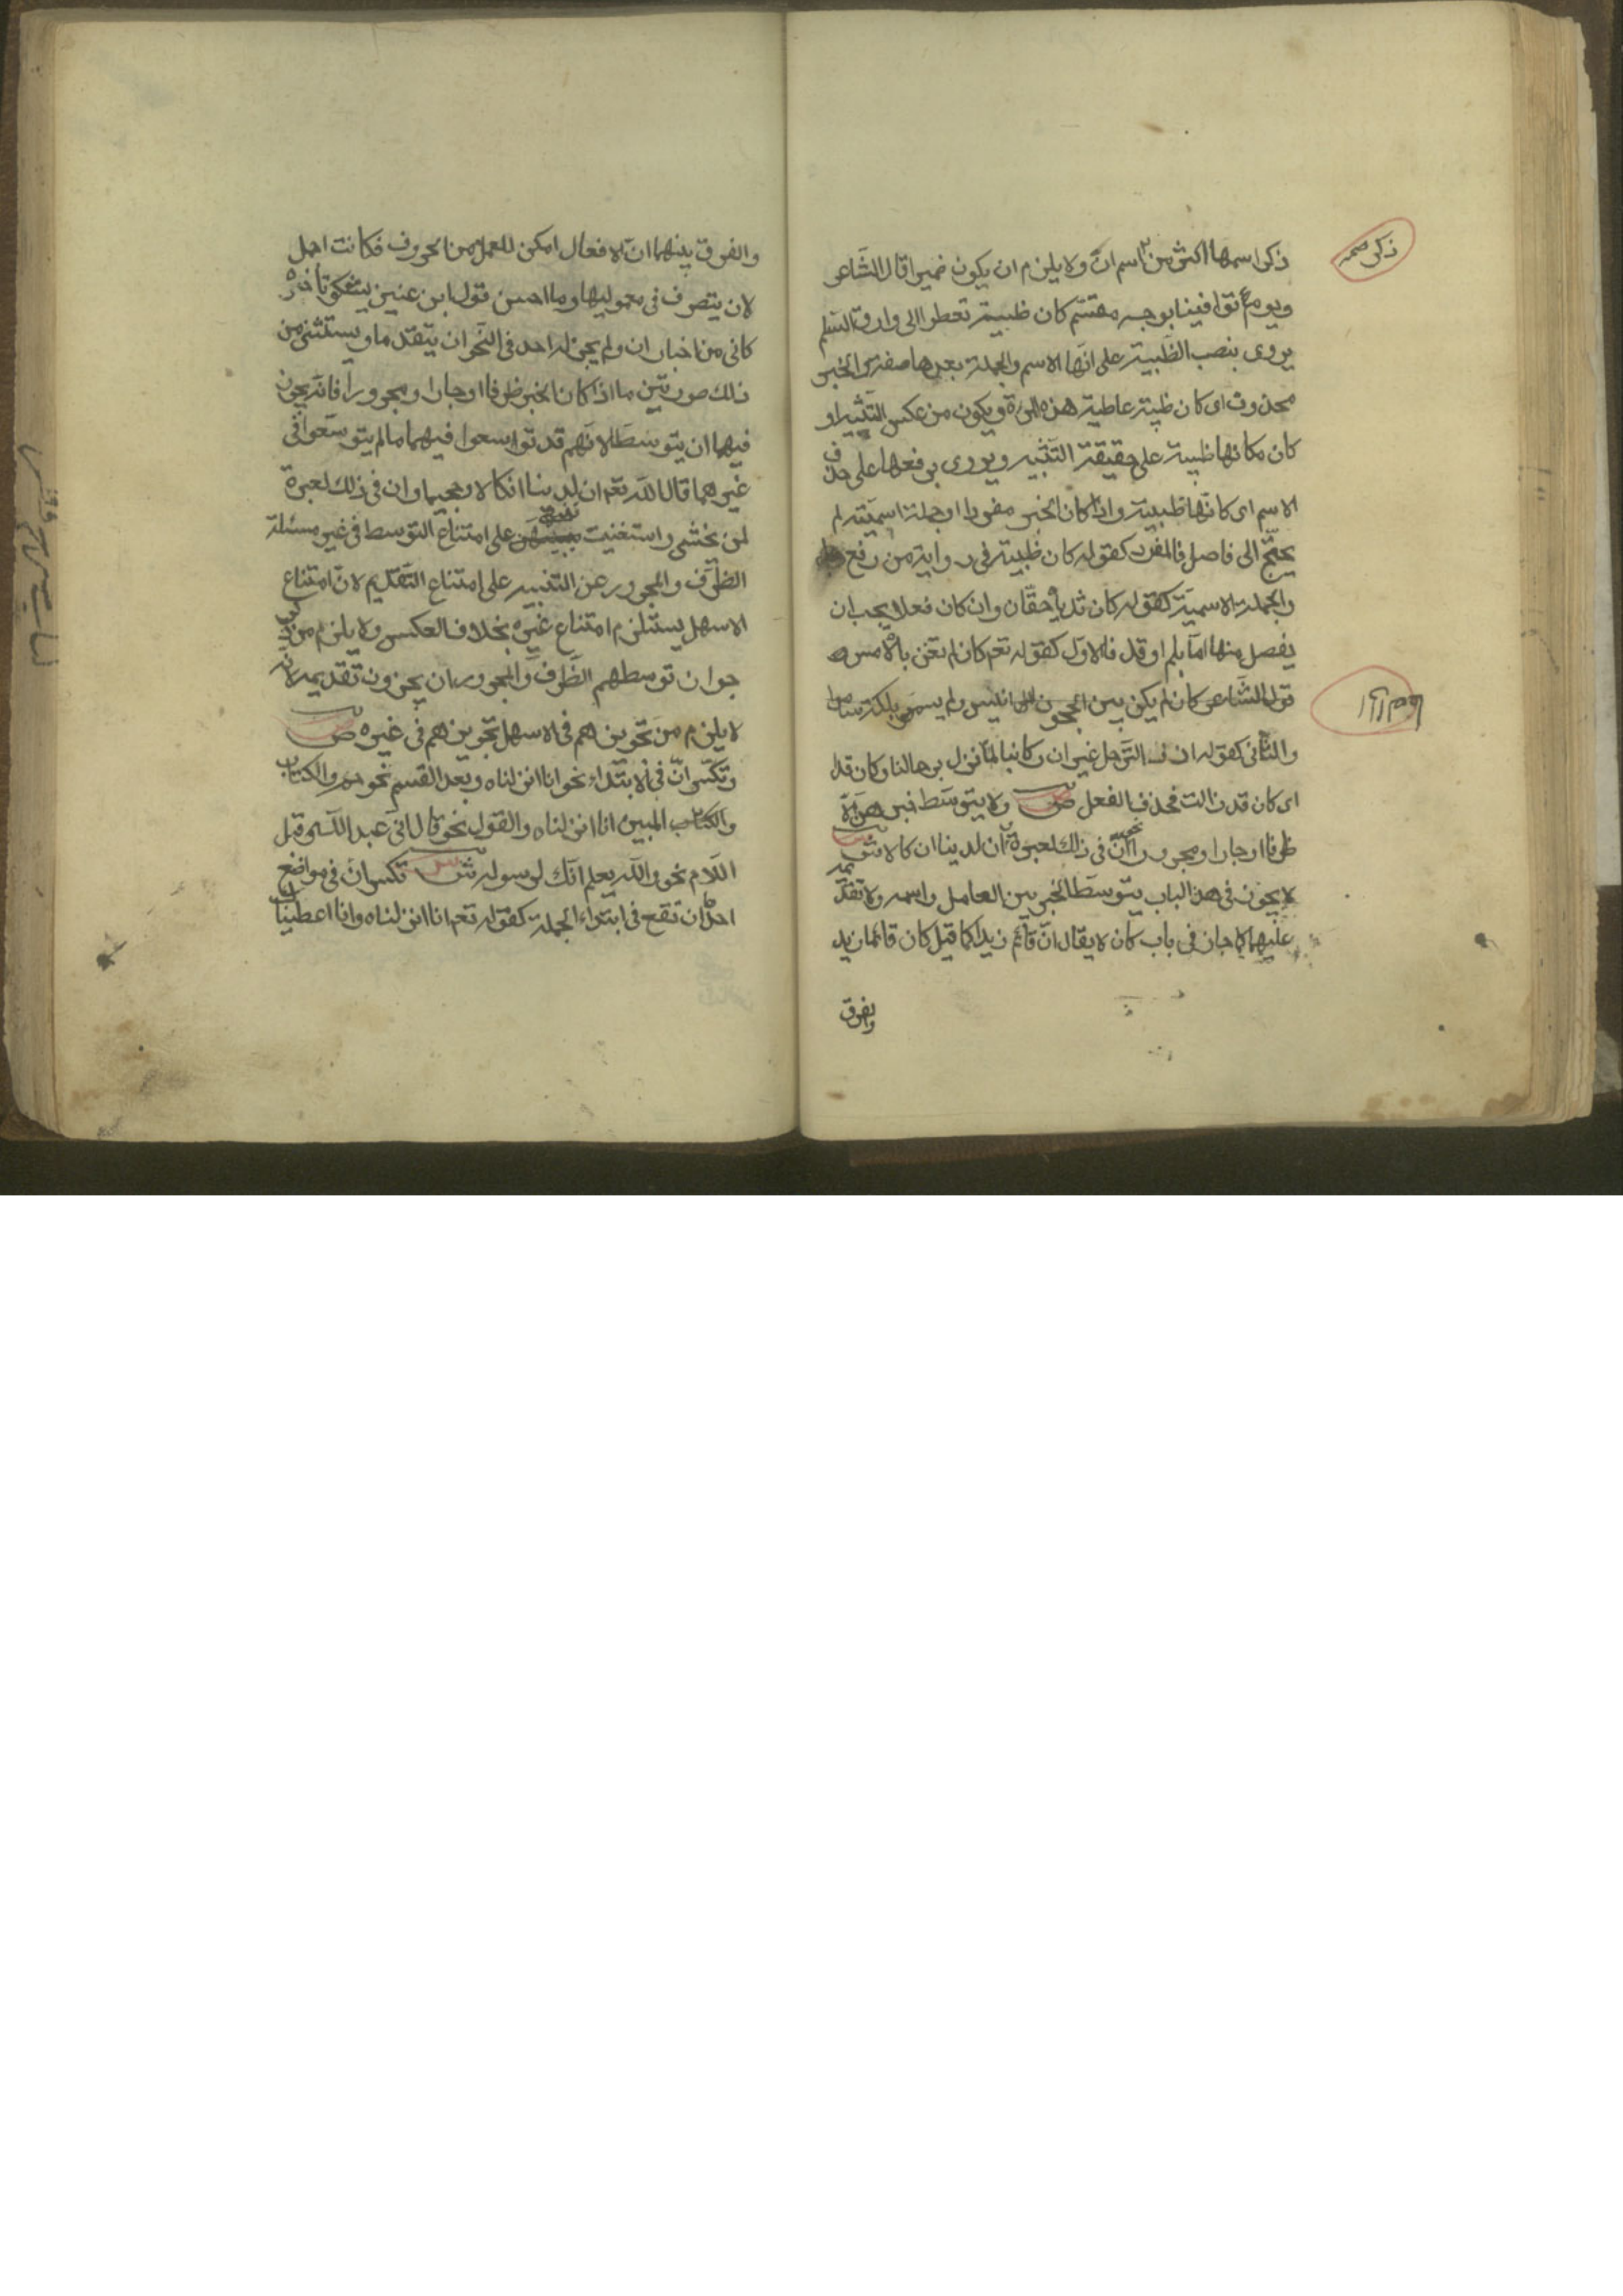 ذكر اسمها اكثر من اسم ان ولا يلزم ان يكون ضميرا قال الشاعر
ويوم توافينا بوجه مقسم كان ظبية تعطو الى وارق السلم
يروى بنصب الظبية على انها الاسم والجملة بعدها صفة والخبر
محذوف اى كان ظبية عاطية هذه المرأة ويكون من عكس التشبيه او
كان مكانها ظبية على حقيقة التشبيه ويروى برفعها على حذف
الاسم اى كانها ظبية واذا كان الخبر مفردا او جملة اسمية لم
يحتج الى فاصل فالمفرد كقوله كان ظبية فى رواية من رفع
والجملة الاسمية كقوله كان ثدياه حقان وان كان فعلا يجب ان
يفصل منها اما بلم او قد فالاول كقوله تعم كان لم تغن بالامس و
قول الشاعر كان لم يكن بين الحجون الى انيس ولم يسمر بمكة سامر
والثانى كقوله ازف الترحل غير ان ركابنا لما تزل برحالنا وكان قد
اى كان قد زالت فحذف الفعل ص ولا يتوسط خبرهن الا
ظرفا او جارا ومجرورا نحو ان فى ذلك لعبرة ان لدينا انكالا ش
لا يجوز فى هذا الباب يتوسط الخبر بين العامل واسمه ولا تقديمه
عليهما كما جاز فى باب كان لا يقال ان قائم زيدا كما قيل كان قائما زيد
والفرق
ذكر صحه
والفرق بينهما ان الافعال امكن للعمل من الحروف فكانت احمل
لان يتصرف فى معموليها وما احسن قول ابن عنين يشكو تأخره
كانى من اخبار ان ولم يجز له احد فى النحو ان يتقدما ويستثنى من
ذلك صورتين ما اذا كان الخبر ظرفا او جارا ومجرورا فانه يجوز
فيهما ان يتوسطا لانهم قد توسعوا فيهما ما لم يتوسعوا فى
غيرهما قال الله تعم ان لدينا انكالا وجحيما وان فى ذلك لعبرة
لمن يخشى واستغنيت بتنبيهى على امتناع التوسط فى غير مسئلة
الظرف والمجرور عن التنبيه على امتناع التقديم لان امتناع
الاسهل يستلزم امتناع غيره بخلاف العكس ولا يلزم من ذكر
جواز توسطهم الظرف والمجرور ان يجزون تقديمه لانه
لا يلزم من تجويزهم فى الاسهل تجويزهم فى غيره ص
وتكسر ان فى الابتداء نحو انا انزلناه وبعد القسم نحو حم والكتاب
والكتاب المبين انا انزلناه والقول نحو قال انى عبد الله وقبل
اللام نحو والله يعلم انك لرسوله ش تكسر ان فى مواضع
احدها ان تقع فى ابتداء الجملة كقوله تعم انا انزلناه وانا اعطيناك